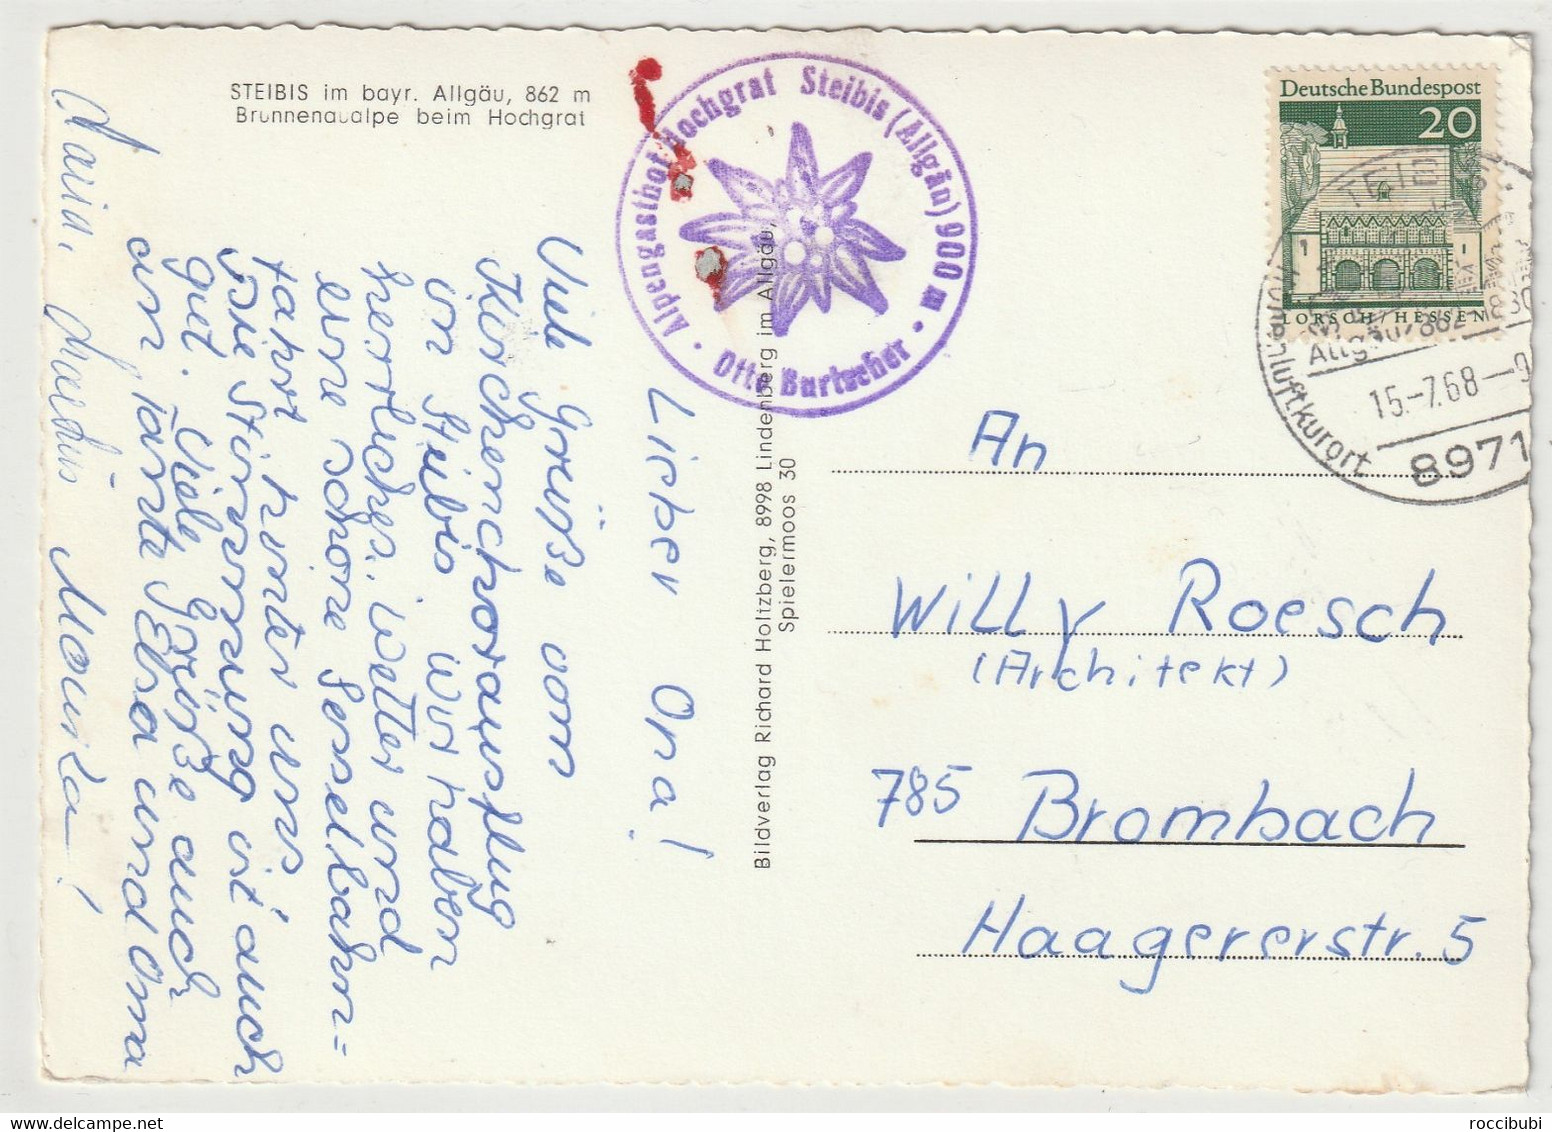 STEIBIS im bayr. Allgäu, 862 m
Brunnenaualpe beim Hochgrat
Alpengasthof Hochgrat Steibis (Allgäu) 900 m
Otto Bartscher
Deutsche Bundespost
20
LORSCH HESSEN
Allgäu 862-
15.-7.68-9
8971
Höhenluftkurort
Lieber Opa!
Viele Grüße vom
Kirchenchorausflug
in Steibis wir haben
herrliches Wetter und
eine schöne Sesselbahn=
fahrt hinter uns
Die Stimmung ist auch
gut. Viele Grüße auch
an Tante Elsa und Oma
Maria, Monika!
Bildverlag Richard Holtzberg, 8998 Lindenberg im Allgäu,
Spielermoos 30
An
Willy Roesch
(Architekt)
785 Brombach
Haagererstr. 5
roccibubi